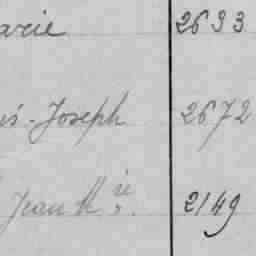 arie 2633
is-Joseph 2672
Jean M.ie 2149